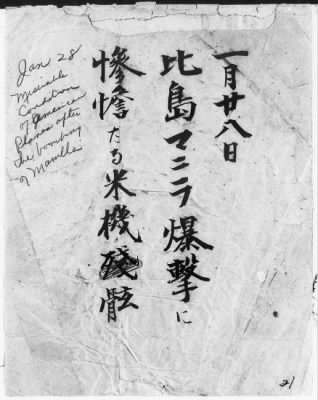 一月廿八日
比島マニラ爆撃に
惨憺たる米機殘骸
Jan 28
Miserable
Condition
of American
Planes after
the bombing
of Manilla
21